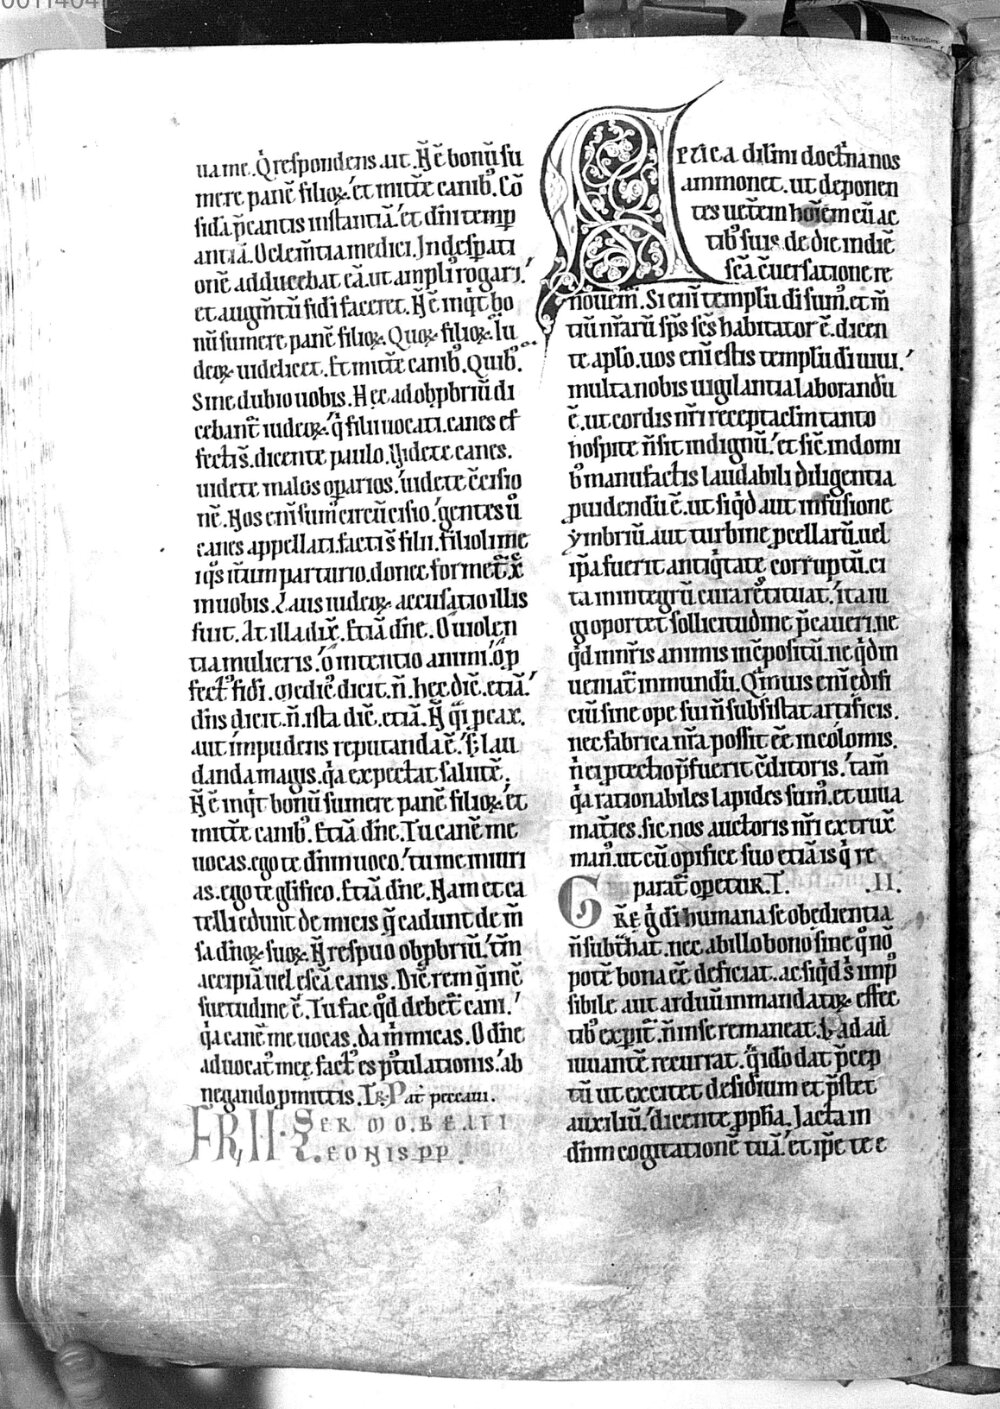 ua me. Q̃ respondens. ait. N̄ ē bonū su
mere panē filioꝝ. et mittẽ canibꝰ. Cō
sida p̄cantis instantiā. et dñi temp
antiā. O clem̄tia medici. In despati
onē adducebat eā. ut amplıꝰ rogari.
et augm̄tū fidi faceret. N̄ ē inq̇t bo
nū sumere panē filioꝝ. Quoꝝ filioꝝ. Iu
deoꝝ uidelicet. Et mittẽ canibꝰ. Quibꝰ.
Sine dubio uobis. Hęc ad obꝓbriū di
cebant̃ iudeoꝝ. q̇ filii uocati. canes ef
fecti s̄. dicente paulo. Videte canes.
uidete malos oꝑarios. uidete c̄cisio
nē. Nos eni sumꝰ circūcisio. gentes ů
canes appellati. facti s̄ filii. filioli mei
q̇s itum parturio. donec formet̃ xp̄c
in uobis. Laus iudeoꝝ. accusatio illis
fuit. At illa dix̃. Etiā dñe. O uiolen
tia mulieris. o intentio animi. o ꝑ
fectꝰ fidi. Medicꝰ dicit. n̄. hec dic̃. etiā.
dñs dicit. n̄. ista dic̃. etiā. N̄ q̃i ꝓcax.
aut impudens reputanda ē. s; lau
danda magis. q̇a expectat salutē.
N̄ ē inq̇t bonū sumere panē filioꝝ. et
mittẽ canibꝰ. Etiā dñe. Tu canē me
uocas. ego te dñm uoco. tu me iniuri
as. ego te glifico. Etiā dñe. Nam et ca
telli edunt de micis q̄ cadunt de m̄
sa dñoꝝ suoꝝ. N̄ respuo obꝓbriū. tm̄
accipiā uel escā canis. Dic̃ rem q̄ in c̄
suetudine ē. Tu fac qd̄ debet̃ cani.
q̇a canē me uocas. da m̄ micas. O dñe
aduocatꝰ meę factꝰ es p̃tulationis. ab
negando ꝓmittis. Tr̃. Pat̃ peccaui.
FR̃ II. SERMO. BEATI
LEONIS PP.
Apłica dilmi doctrina nos
ammonet. ut deponen
tes uetem hoiem cū ac
tibꝰ suis. de die in diē
scā c̄uersatione re
nouem̃. Si eni templū di sumꝰ. et m̄
tiū nr̃arū sps scs habitator ē. dicen
te aplo. uos eni estis templū di uiui.
multa nobis uigilantia laborandū
ē. ut cordis nr̃i receptacłm tanto
hospite n̄ sit indignū. et sic̃ in domi
bꝰ manufactis laudabili diligentia
ꝓuidendū ē. ut si qd̄ aut infusione
ymbriū. aut turbine ꝓcellarū. uel
ipa fuerit antiq̇tate corruptū. ci
ta in integrū cura restituat. ita iu
gi oportet sollicitudine p̄caueri. ne
qd̄ in nr̃is animis inc̄positū. ne qd̄ in
ueniat̃ inmundū. Q̄muis eni edifi
ciū sine ope sui n̄ subsistat artificis.
nec fabrica nr̃a possit ee incolomis.
n̄ ei ptectio p̄fuerit c̄ditoris. tam̄
q̇a rationabiles lapides sumꝰ. et uiua
mat̃ies. sic nos auctoris nr̃i extrux̃
manꝰ. ut cū opifice suo etiā is q̇ re
parat̃ opetur. T. .II.
GR̃Ę ḡ di humana se obedientia
n̄ subt̃hat. nec ab illo bono sine q̊ nō
potē bona ee deficiat. ac si qd̄ s̄ inp
sibile aut arduū in mandatoꝝ effec
tibꝰ expit̃. n̄ in se remaneat. s; ad ad
iuuantē recurrat. q̇ ido dat p̄cep
tū ut excitet desidium et p̄stet
auxiliū. dicente ppha. Iacta in
dñm cogitationē tuā. et ipe te e